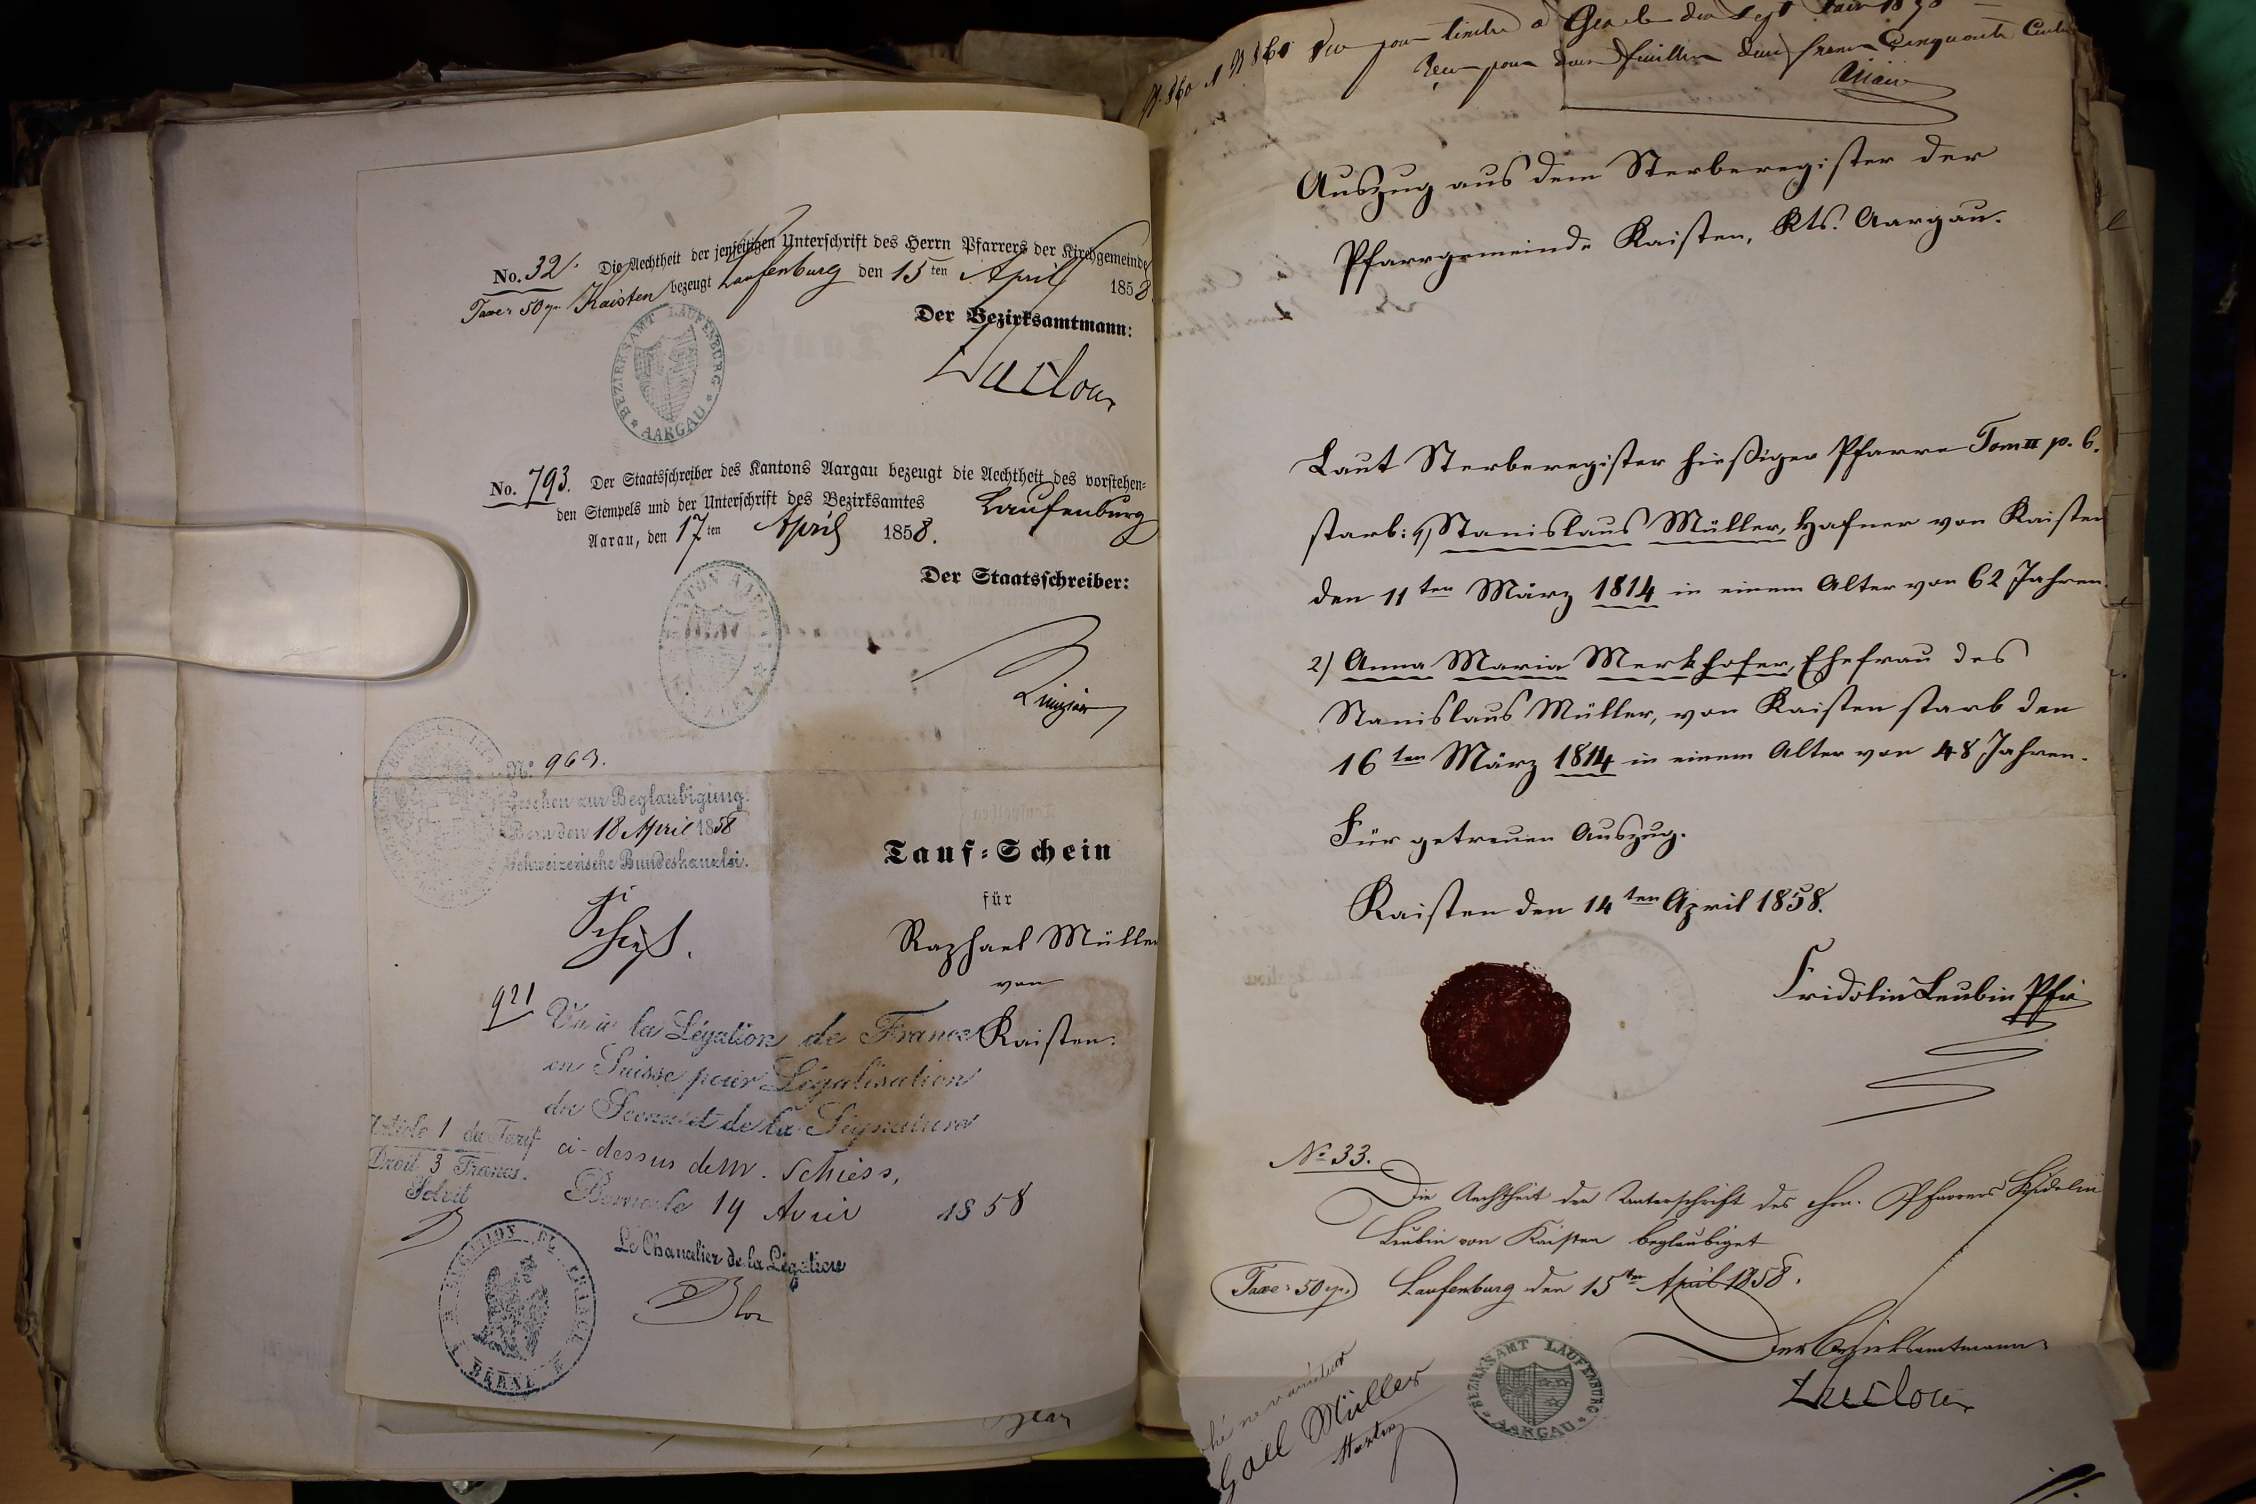 No. 32. Die Aechtheit der jenseitigen Unterschrift des Herrn Pfarrers der Kirchgemeinde
Taxe: 50 rp. Kaisten bezeugt Laufenburg den 15ten April 1858.
Der Bezirksamtmann:
BEZIRKSAMT LAUFENBURG
AARGAU
No. 793. Der Staatsschreiber des Kantons Aargau bezeugt die Aechtheit des vorstehen-
den Stempels und der Unterschrift des Bezirksamtes Laufenburg
Aarau, den 17ten April 1858.
Der Staatsschreiber:
KANTON AARGAU
No. 963.
Gesehen zur Beglaubigung.
Bern den 18 April 1858
Schweizerische Bundeskanzlei.
Schiess.
Tauf=Schein
für
Raphael Müller
von
Kaisten.
921
Vu à la Légation de France
en Suisse pour Légalisation
du Sceau et de la Signature
ci-dessus de M. Schiess,
Berne le 19 Avril 1858
Article 1 du Tarif
Droit 3 Francs.
Solvit
Le Chancelier de la Légation
LEGATION DE FRANCE
BERNE
Vu pour timbre à
Reçu pour deux feuilles deux francs Cinquante Cent
Auszug aus dem Sterberegister der
Pfarrgemeinde Kaisten, Kts. Aargau.
Laut Sterberegister hießiger Pfarre Tom II p. 6.
starb: 1) Stanislaus Müller, Hafner von Kaisten
den 11ten März 1814 in einem Alter von 62 Jahren.
2) Anna Maria Merkhofer, Ehefrau des
Stanislaus Müller, von Kaisten starb den
16ten März 1814 in einem Alter von 48 Jahren.
Für getreuen Auszug.
Kaisten den 14ten April 1858.
Fridolin Leubin Pfr
No 33.
Die Aechtheit der Unterschrift des Hrn. Pfarrers Fridolin
Leubin von Kaisten beglaubiget
Taxe: 50 rp. Laufenburg den 15ten April 1858.
Der Bezirksamtmann:
BEZIRKSAMT LAUFENBURG
AARGAU
ne varietur
Müller